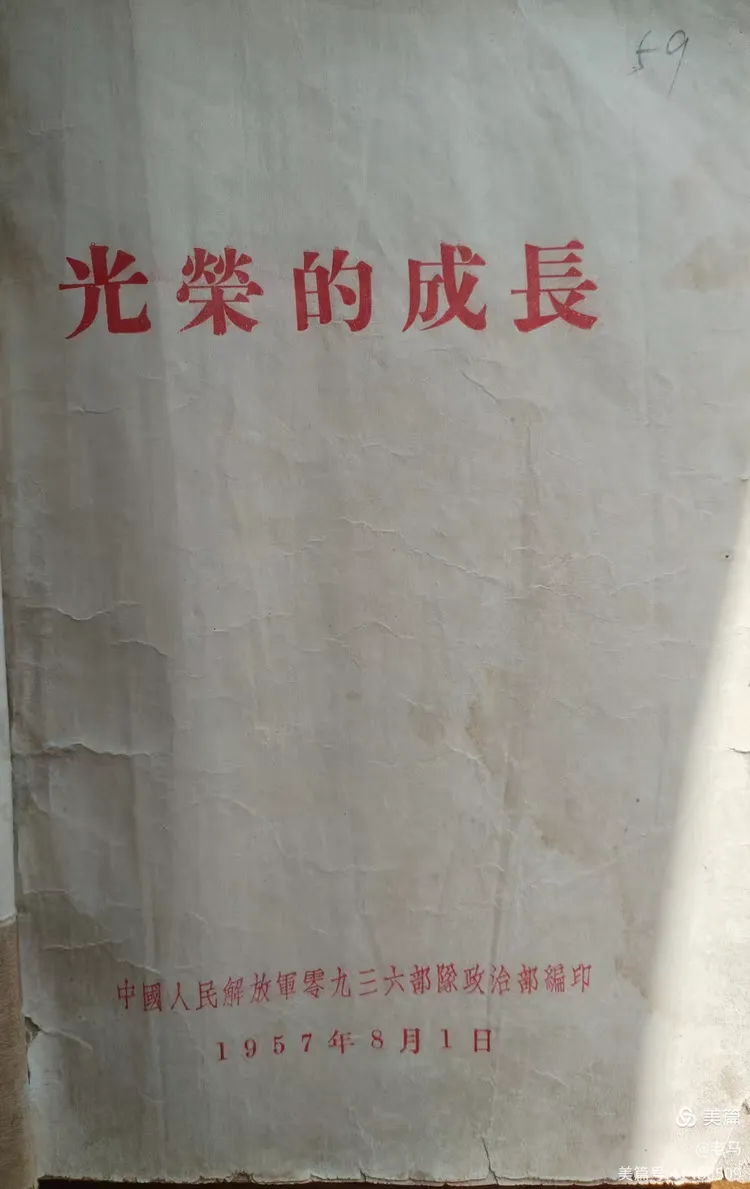 59
光榮的成長
中國人民解放軍零九三六部隊政治部編印
1957年8月1日
美篇
@老马
美篇号